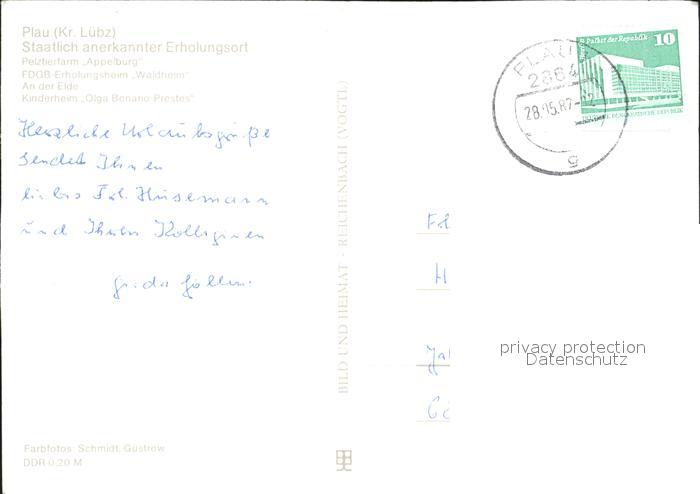 Plau (Kr. Lübz)
Staatlich anerkannter Erholungsort
Pelztierfarm „Appelburg"
FDGB-Erholungsheim „Waldheim"
An der Elde
Kinderheim „Olga Benario-Prestes"
Herzliche Urlaubsgrüße
sendet Ihnen
liebes Frl. Husemann
und Ihren Kolleginnen
Farbfotos: Schmidt, Güstrow
DDR 0,20 M
BILD UND HEIMAT · REICHENBACH (VOGTL)
PLAU
2864
28.05.87-12
g
Palast der Republik 10
DEUTSCHE DEMOKRATISCHE REPUBLIK
H
privacy protection
Datenschutz